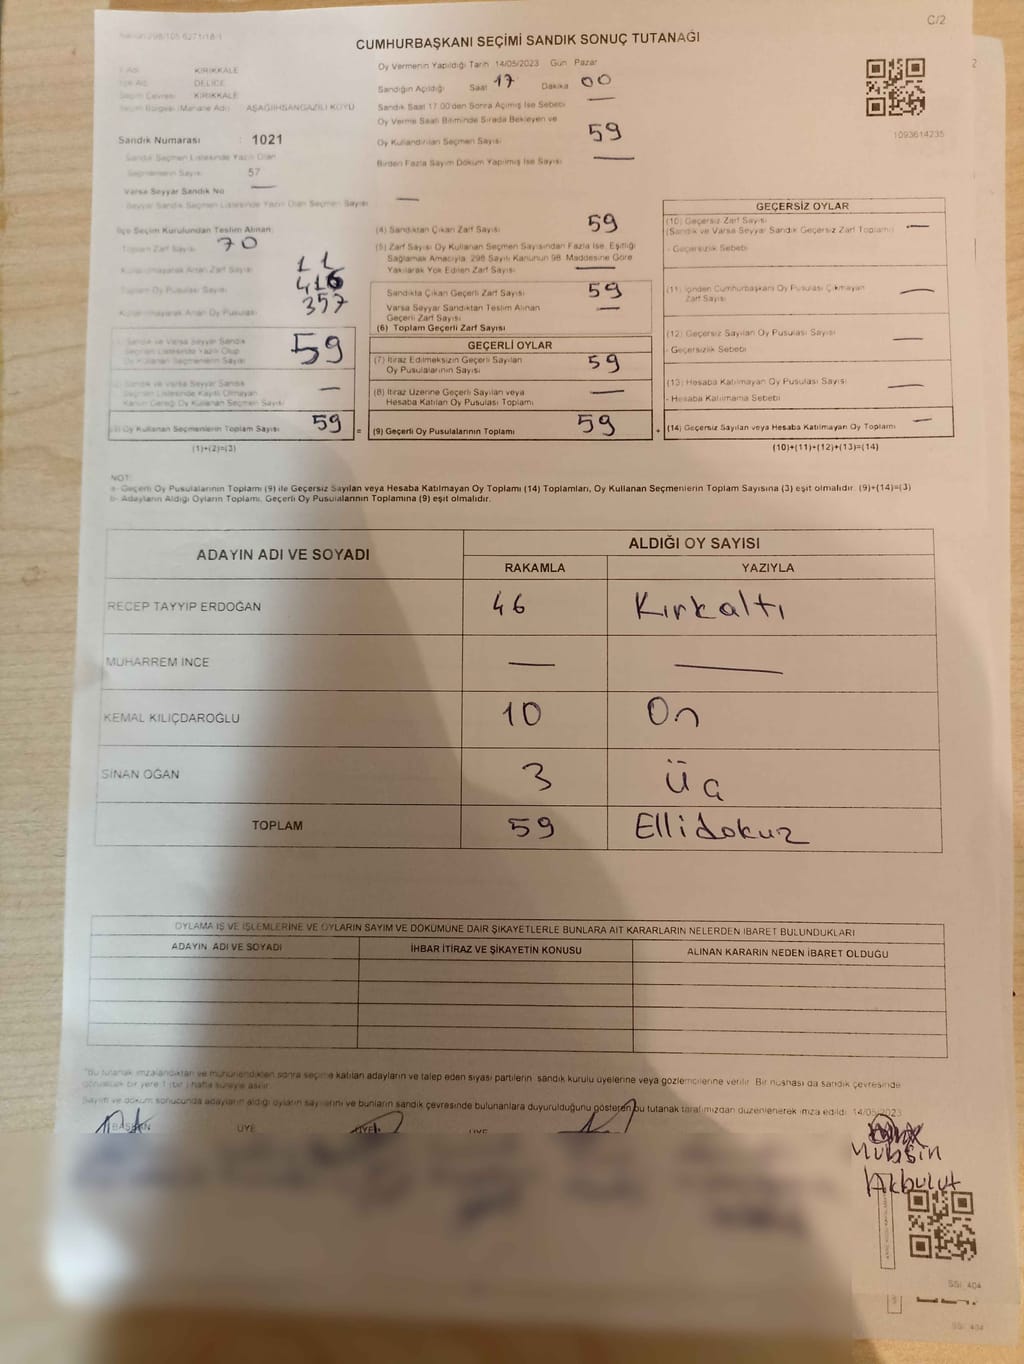 C/2
CUMHURBAŞKANI SEÇİMİ SANDIK SONUÇ TUTANAĞI
Oy Vermenin Yapıldığı Tarih 14/05/2023 Gün Pazar
KIRIKKALE
DELİCE
KIRIKKALE
AŞAĞIIHSANGAZİLİ KÖYÜ
Sandığın Açıldığı Saat 17 Dakika 00
Sandık Saat 17.00'den Sonra Açılmış İse Sebebi —
Oy Verme Saati Bitiminde Sırada Bekleyen ve
Oy Kullandırılan Seçmen Sayısı 59
Birden Fazla Sayım Döküm Yapılmış İse Sayısı —
1093614235
Sandık Numarası : 1021
Sandık Seçmen Listesinde Yazılı Olan
Seçmenlerin Sayısı 57
Varsa Seyyar Sandık No —
Seyyar Sandık Seçmen Listesinde Yazılı Olan Seçmen Sayısı —
İlçe Seçim Kurulundan Teslim Alınan
Toplam Zarf Sayısı 70
Kullanılmayarak Artan Zarf Sayısı 11
Toplam Oy Pusulası Sayısı 416
Kullanılmayarak Artan Oy Pusulası 357
Sandık ve Varsa Seyyar Sandık
Seçmen Listesinde Yazılı Olup
Oy Kullanan Seçmenlerin Sayısı 59
Sandık ve Varsa Seyyar Sandık
Seçmen Listesinde Kayıtlı Olmayan
Kanun Gereği Oy Kullanan Seçmen Sayısı —
(3) Oy Kullanan Seçmenlerin Toplam Sayısı 59
(1)+(2)=(3)
(4) Sandıktan Çıkan Zarf Sayısı 59
(5) Zarf Sayısı Oy Kullanan Seçmen Sayısından Fazla İse, Eşitliği
Sağlamak Amacıyla 298 Sayılı Kanunun 98. Maddesine Göre
Yakılarak Yok Edilen Zarf Sayısı —
Sandıkta Çıkan Geçerli Zarf Sayısı 59
Varsa Seyyar Sandıktan Teslim Alınan
Geçerli Zarf Sayısı —
(6) Toplam Geçerli Zarf Sayısı
GEÇERLİ OYLAR
(7) İtiraz Edilmeksizin Geçerli Sayılan
Oy Pusulalarının Sayısı 59
(8) İtiraz Üzerine Geçerli Sayılan veya
Hesaba Katılan Oy Pusulası Toplamı —
= (9) Geçerli Oy Pusulalarının Toplamı 59
GEÇERSİZ OYLAR
(10) Geçersiz Zarf Sayısı
(Sandık ve Varsa Seyyar Sandık Geçersiz Zarf Toplamı) —
- Geçersizlik Sebebi
(11) İçinden Cumhurbaşkanı Oy Pusulası Çıkmayan
Zarf Sayısı —
(12) Geçersiz Sayılan Oy Pusulası Sayısı —
- Geçersizlik Sebebi
(13) Hesaba Katılmayan Oy Pusulası Sayısı —
- Hesaba Katılmama Sebebi
+ (14) Geçersiz Sayılan veya Hesaba Katılmayan Oy Toplamı —
(10)+(11)+(12)+(13)=(14)
NOT:
a- Geçerli Oy Pusulalarının Toplamı (9) ile Geçersiz Sayılan veya Hesaba Katılmayan Oy Toplamı (14) Toplamları, Oy Kullanan Seçmenlerin Toplam Sayısına (3) eşit olmalıdır. (9)+(14)=(3)
b- Adayların Aldığı Oyların Toplamı, Geçerli Oy Pusulalarının Toplamına (9) eşit olmalıdır.
ADAYIN ADI VE SOYADI ALDIĞI OY SAYISI
RAKAMLA YAZIYLA
RECEP TAYYIP ERDOĞAN 46 Kırkaltı
MUHARREM İNCE — —
KEMAL KILIÇDAROĞLU 10 On
SİNAN OĞAN 3 Üç
TOPLAM 59 Ellidokuz
OYLAMA İŞ VE İŞLEMLERİNE VE OYLARIN SAYIM VE DÖKÜMÜNE DAİR ŞİKAYETLERLE BUNLARA AİT KARARLARIN NELERDEN İBARET BULUNDUKLARI
ADAYIN ADI VE SOYADI İHBAR İTİRAZ VE ŞİKAYETİN KONUSU ALINAN KARARIN NEDEN İBARET OLDUĞU
*Bu tutanak imzalandıktan ve mühürlendikten sonra seçime katılan adayların ve talep eden siyasi partilerin sandık kurulu üyelerine veya gözlemcilerine verilir. Bir nüshası da sandık çevresinde
görülecek bir yere 1 (bir) hafta süreyle asılır.
Sayım ve döküm sonucunda adayların aldığı oyların sayılarını ve bunların sandık çevresinde bulunanlara duyurulduğunu gösteren bu tutanak tarafımızdan düzenlenerek imza edildi. 14/05/2023
BAŞKAN ÜYE ÜYE ÜYE
Muhsin
Akbulut
SSİ: 404
SSİ: 404